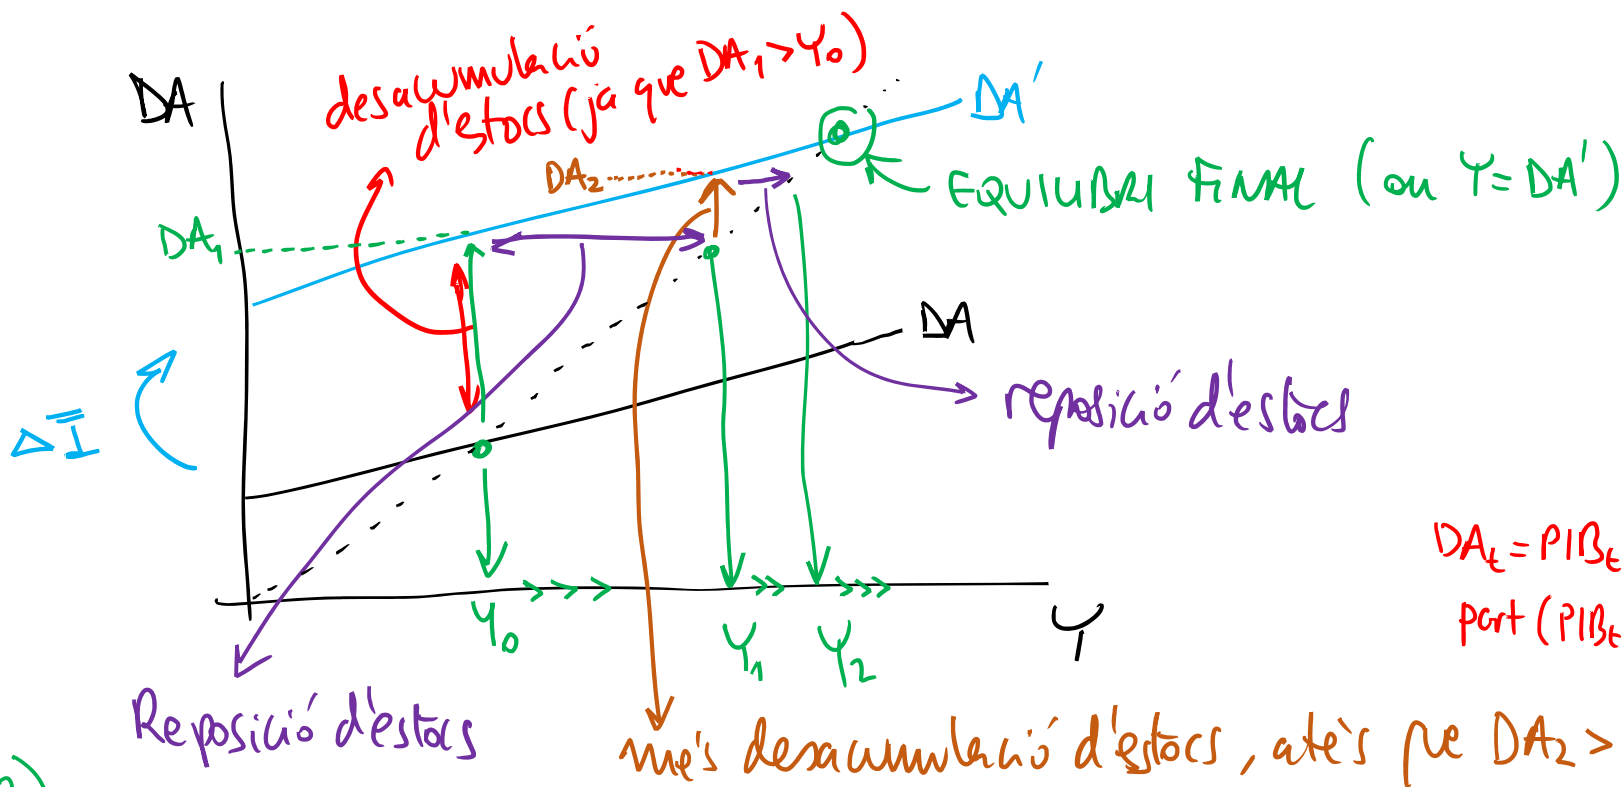 desacumulació
d'estocs (ja que DA₁ > Y₀)
DA
DA'
DA₂
EQUILIBRI FINAL (on Y = DA')
DA₁
DA
ΔI̅
reposició d'estocs
DAₜ = PIBₜ
part (PIBₜ
Y₀
Y₁
Y₂
Y
Reposició d'estocs
més desacumulació d'estocs, atès que DA₂ >